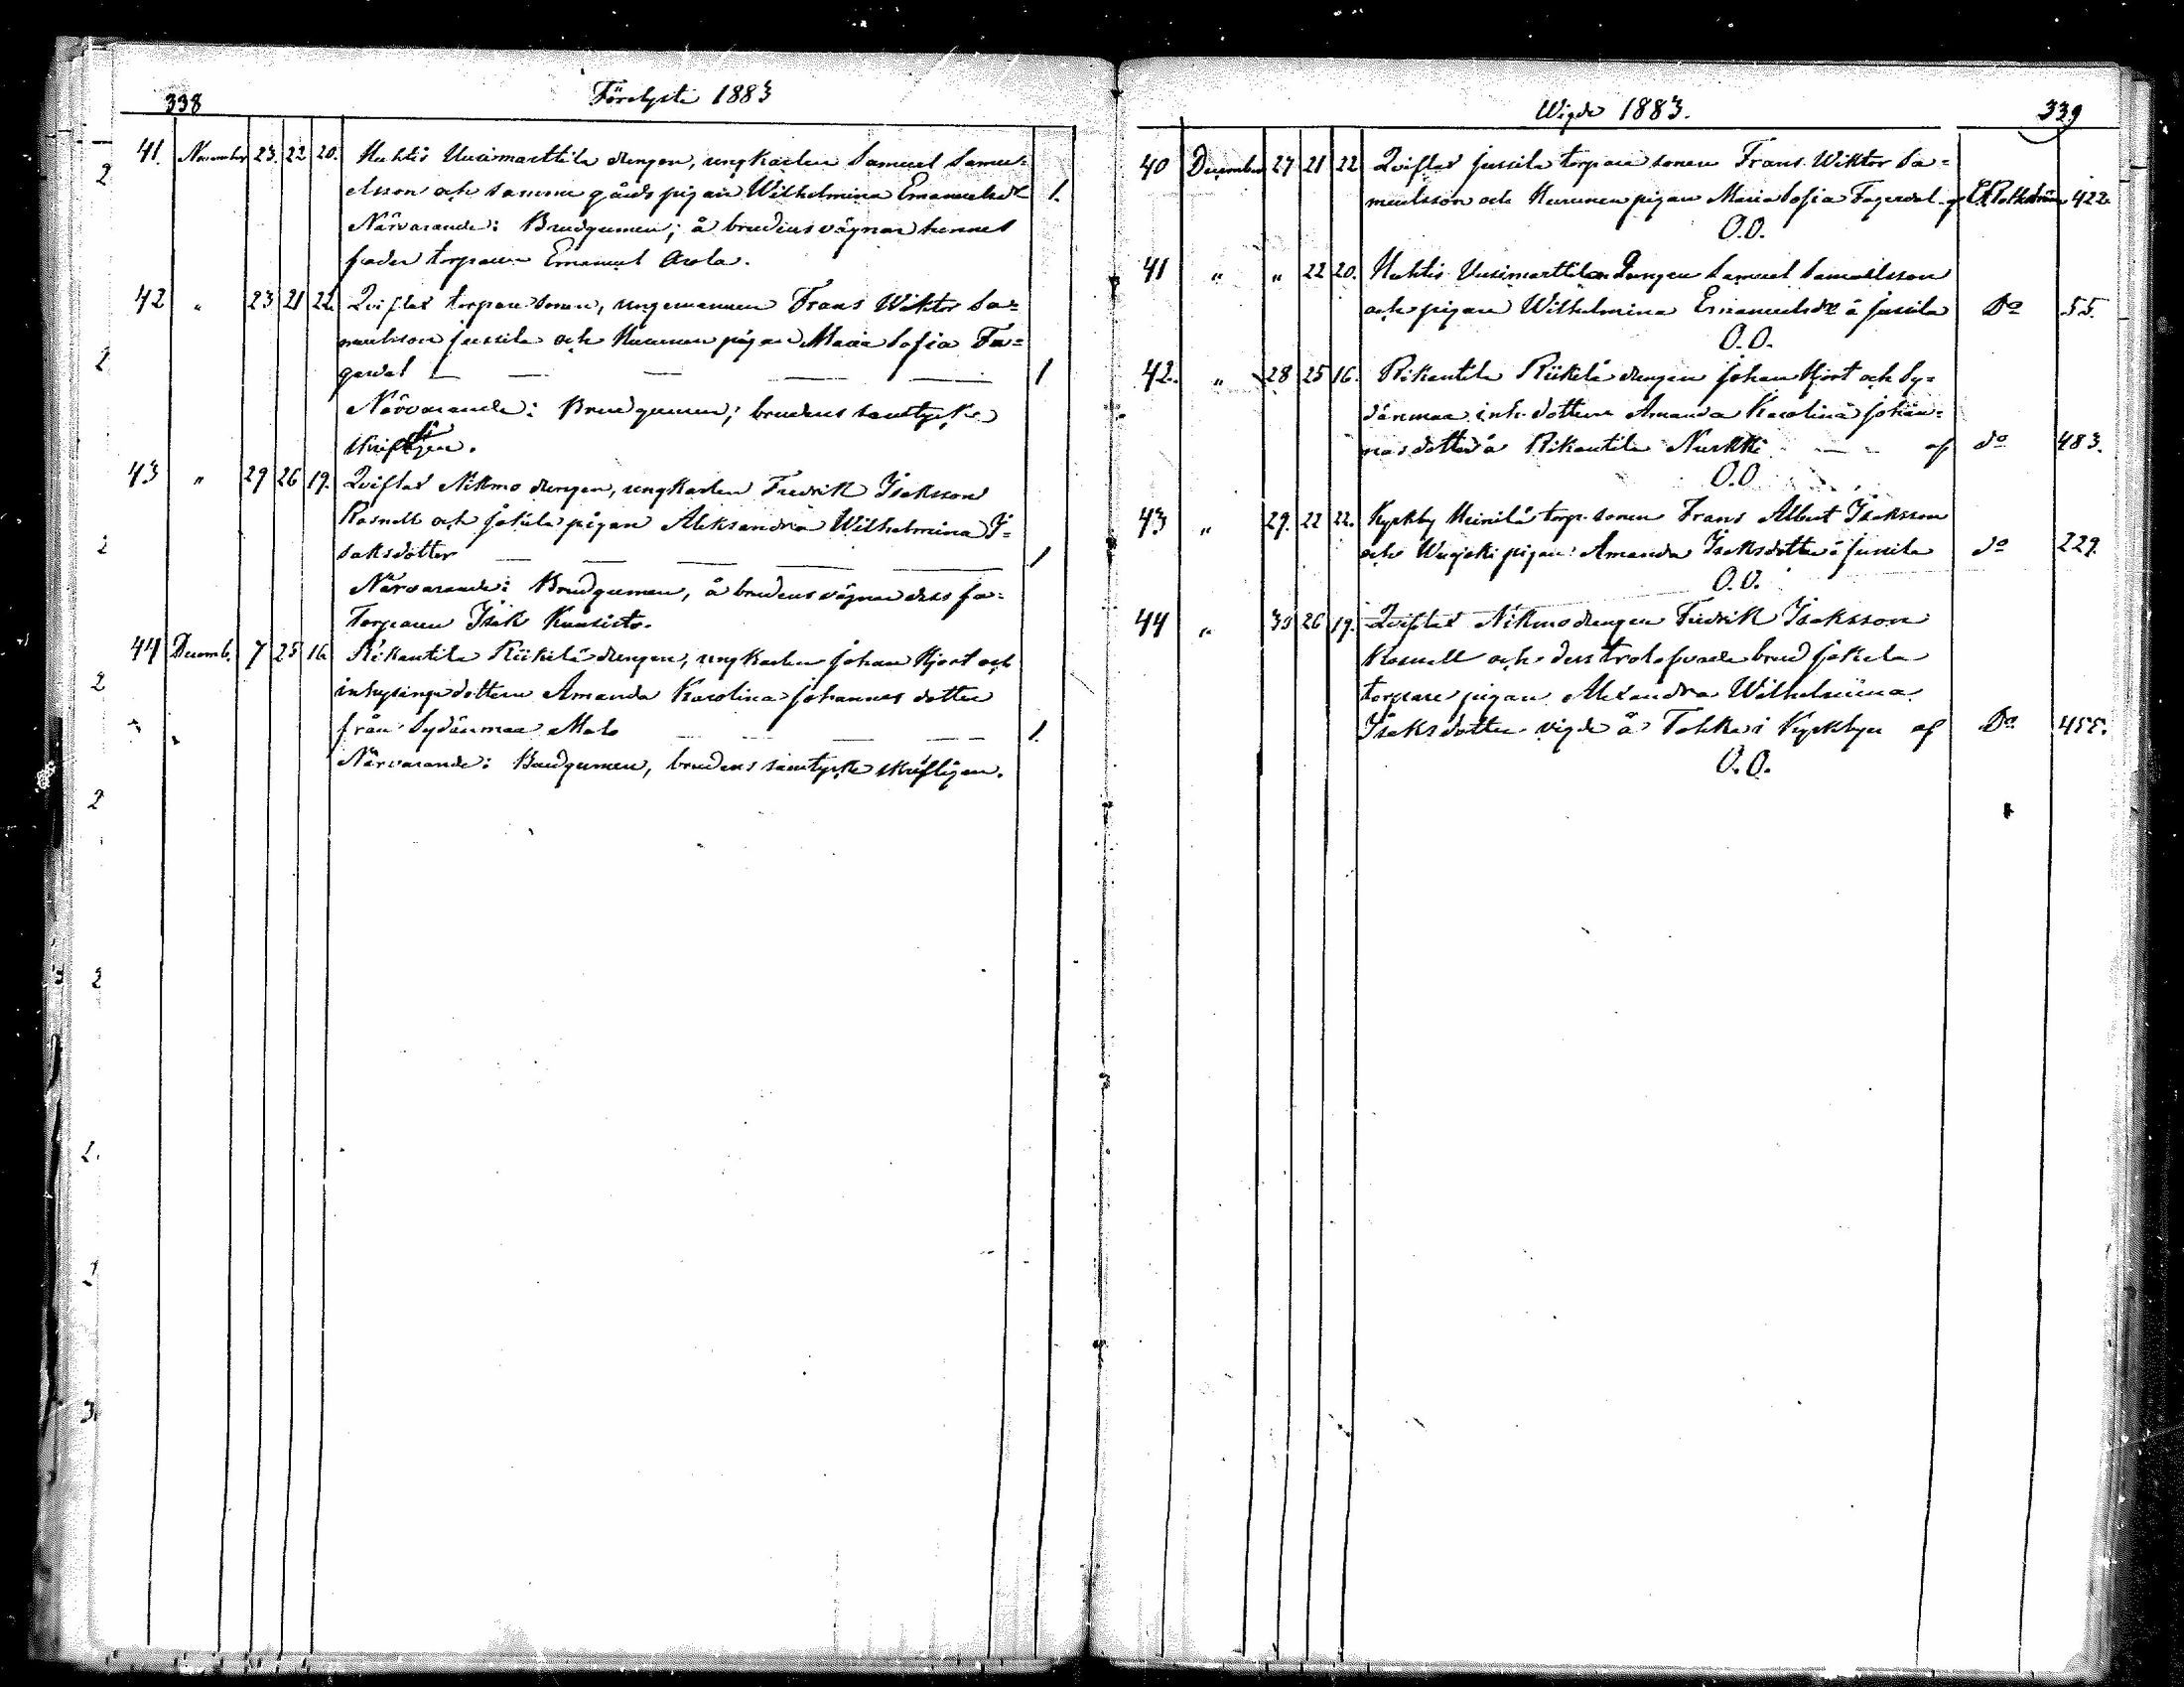 338
Förelyste 1883
41. November 23. 22 20. Huhtis Uusimarttila drengen, ungkarlen Samuel Samu-
elsson och samma gårds pigan Wilhelmina Emanuelsdr 1.
Närvarande: Brudgumen; å brudens vägnar hennes
fader torparen Emanuel Arola.
42 " 23 21 22. Qviflax torpare sonen, ungemannen Frans Wiktor Sa-
muelsson Jussila och Hurunen pigan Maria Sofia Fa-
gerdal 1
Närvarande: Brudgumen; brudens samtycke
skriftligen.
43 " 29 26 19. Qviflax Nikmo drengen, ungkarlen Fredrik Isaksson
Rosnell och Jokela pigan Aleksandra Wilhelmina I-
saksdotter 1
Närvarande: Brudgumen, å brudens vägnar dess fa-
Torparen Isak Kuusisto.
44 Decemb. 7 25 16. Rikantila Riikilä drengen, ungkarlen Johan Hjort och
inhysinge dottern Amanda Karolina Johannes dotter
från Sydänmaa 1.
Närvarande: Brudgumen, brudens samtycke skriftligen.
Wigde 1883.
339
40 December 27 21 22 Qviflax Jussila torpare sonen Frans Wiktor Sa-
muelsson och Hurunen pigan Maria Sofia Fagerdal af 422.
O.O.
41 " " 22 20. Huhtis Uusimarttila Drengen Samuel Samuelsson
och pigan Wilhelmina Emanuelsdr å Jussila Do 55.
O.O.
42. " 28 25 16. Rikantila Riikilä drengen Johan Hjort och Sy-
dänmaa inh. dottern Amanda Karolina Johan-
nesdotter å Rikantila Nurkki af do 483.
O.O
43 " 29. 22 22. Kyrkby Heinilä torp. sonen Frans Albert Isaksson
och pigan Amanda Isaksdotter å Jussila do 229.
O.O.
44 " 30 26 19. Qviflax Nikmo drengen Fredrik Isaksson
Rosnell och dess trolofvade brud Jokela
torpare pigan Alexandra Wilhelmina
Isaksdotter vigde å Tokka i Kyrkbyn af Do 455.
O.O.